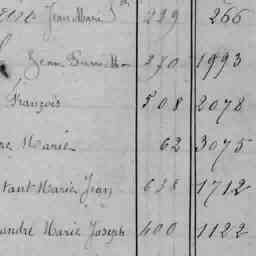 Jean Marie 229 266
Jean 370 1993
François 508 2078
Marie 62 3075
Marie Jean 638 1712
Marie Joseph 400 1122